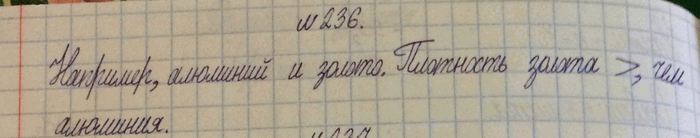 №236.
Например, алюминий и золото. Плотность золота >, чем
алюминия.
№237.